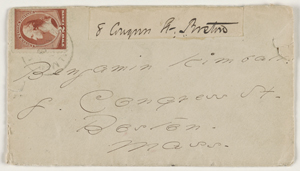 8 Congress St. Boston
Benjamin Kimball
8. Congress St.
Boston.
Mass.